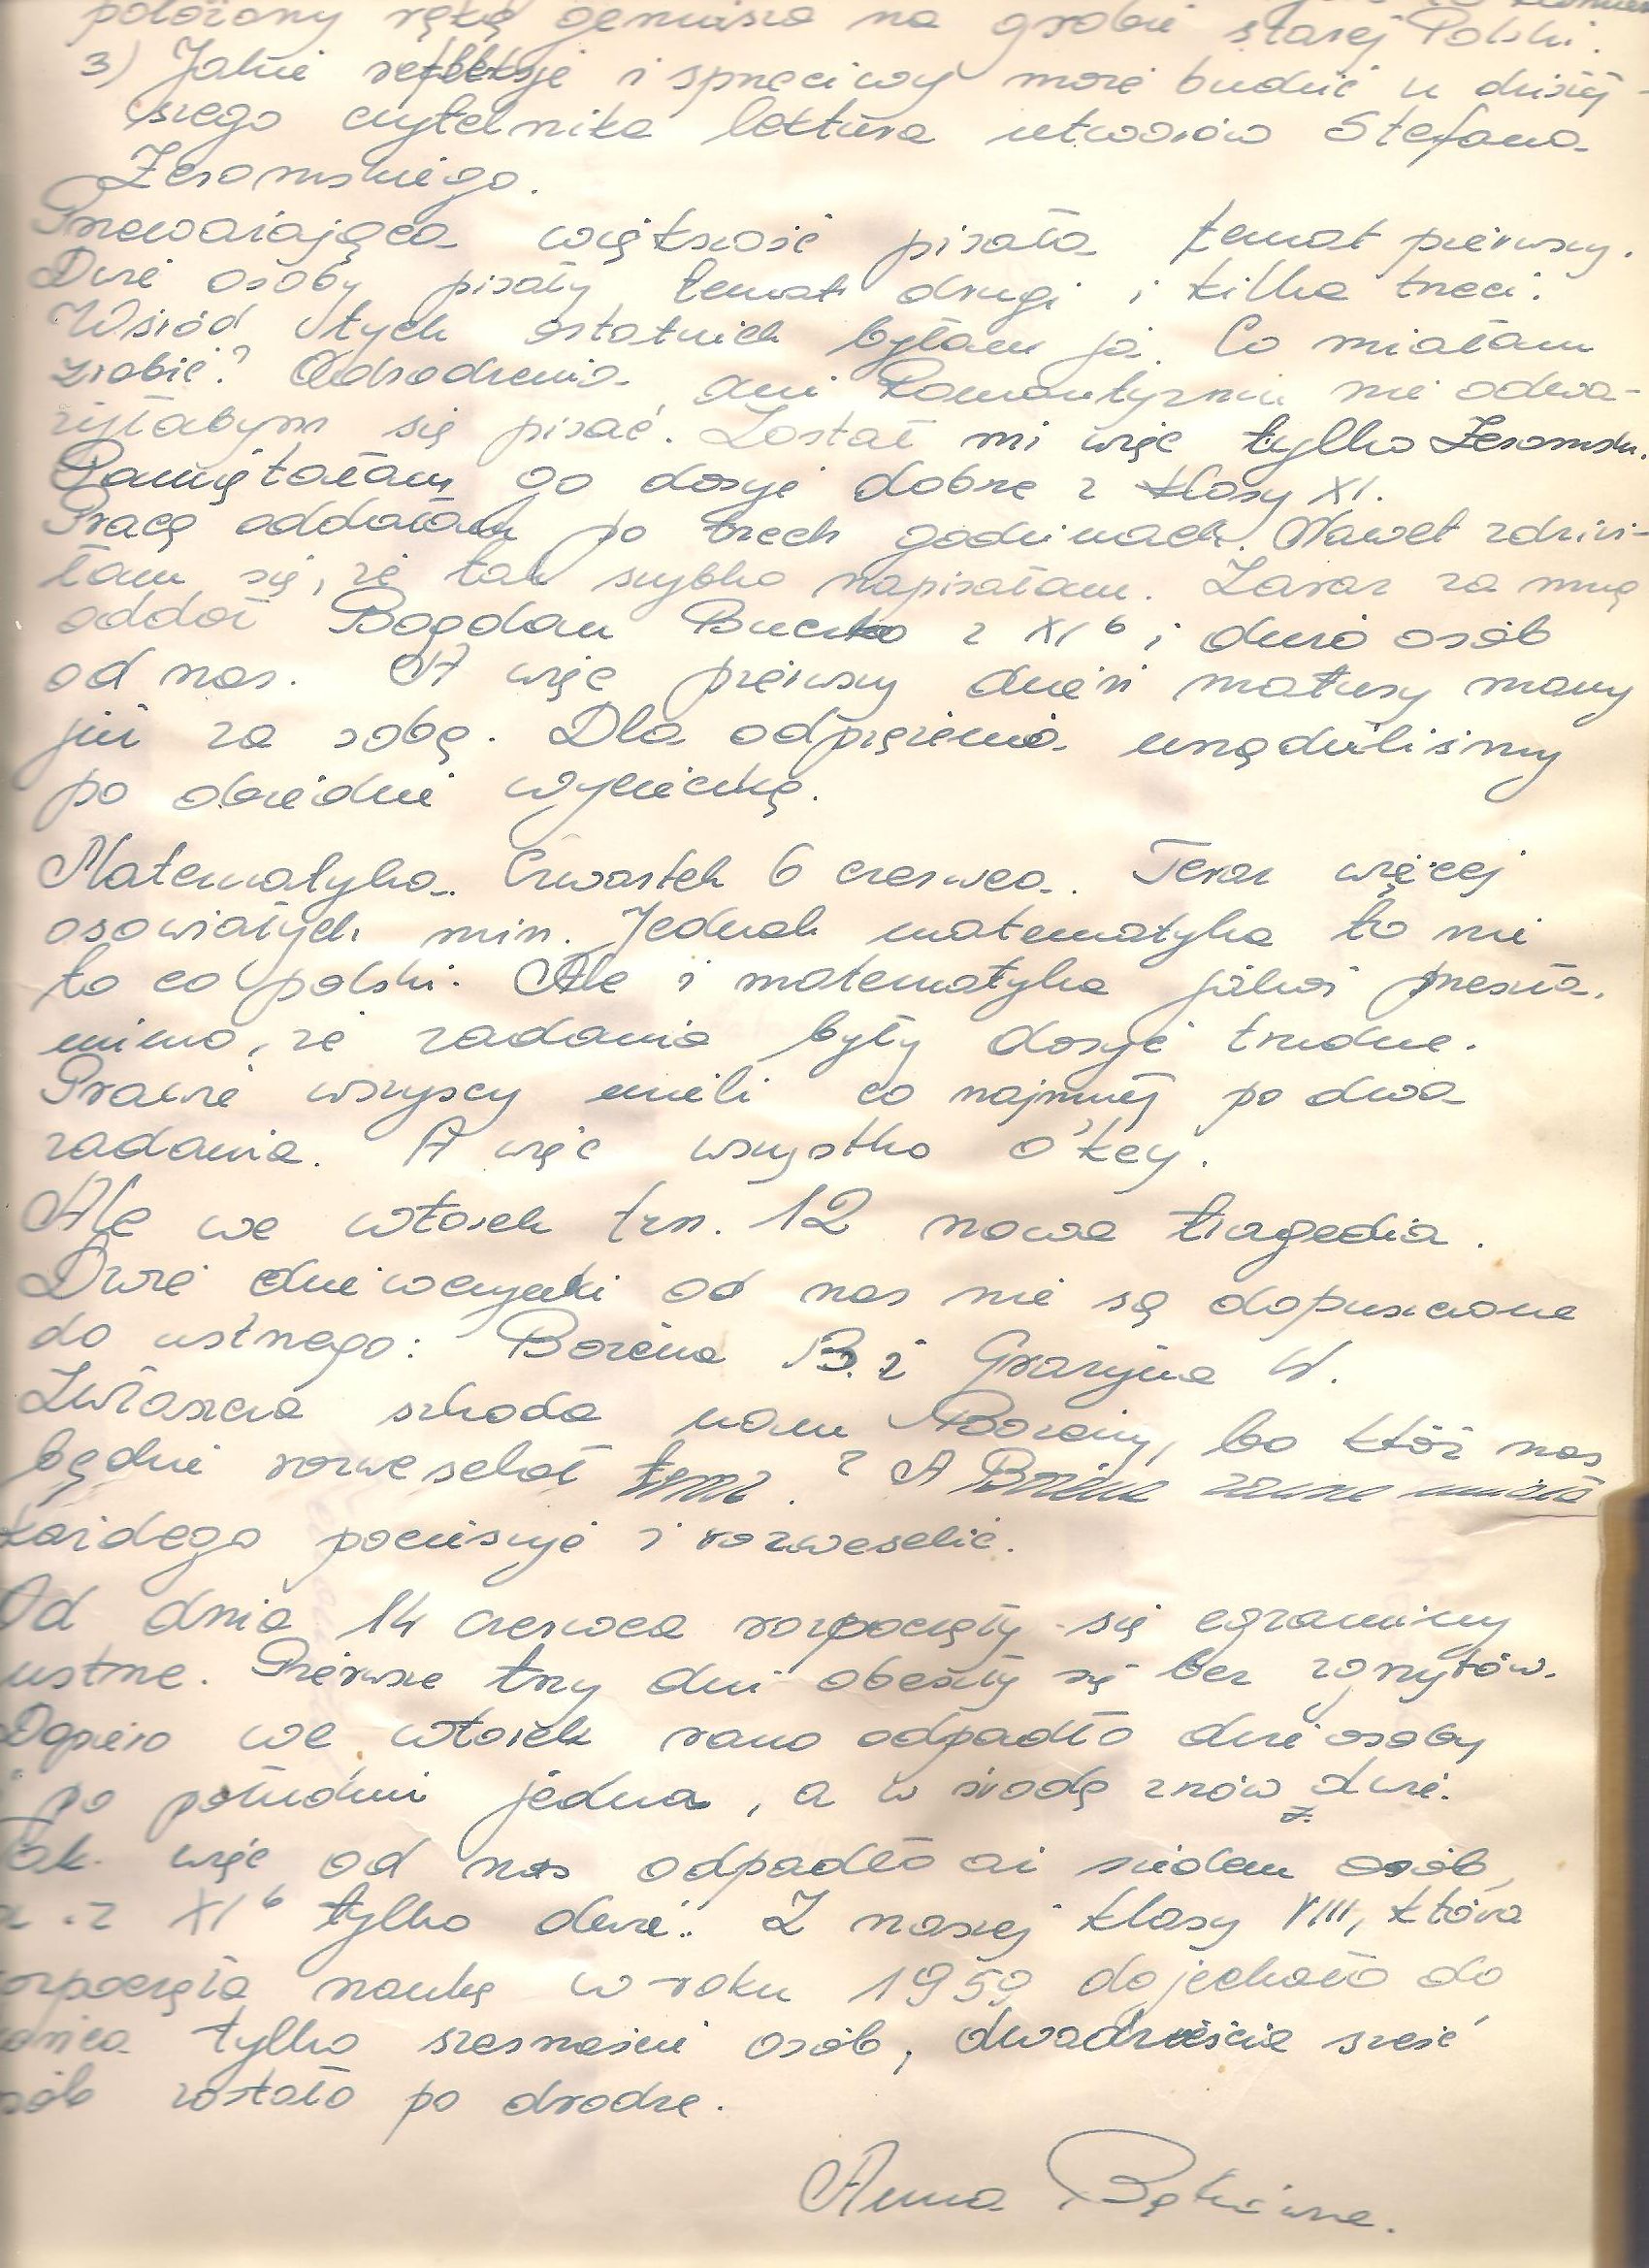 położony ręką geniusza na grobie starej Polski.
3) Jakie refleksje i sprzeciwy może budzić u dzisiej-
szego czytelnika lektura utworów Stefana
Żeromskiego.
Przeważająca większość pisała temat pierwszy.
Dwie osoby pisały temat drugi i kilka trzeci.
Wśród tych ostatnich byłam ja. Co miałam
zrobić? Odrodzenia, ani Romantyzmu nie odwa-
żyłabym się pisać. Został mi więc tylko Żeromski.
Pamiętałam go dosyć dobrze z klasy XI.
Pracę oddałam po trzech godzinach. Nawet zdziwi-
łam się, że tak szybko napisałam. Zaraz za mną
oddał Bogdan z XI b i dużo osób
od nas. A więc pierwszy dzień matury mamy
już za sobą. Dla odprężenia urządziliśmy
po obiedzie wycieczkę.
Matematyka. Czwartek 6 czerwca. Teraz więcej
osowiałych min. Jednak matematyka to nie
to co polski. Ale i matematyka jakoś przeszła.
mimo, że zadania były dosyć trudne.
Prawie wszyscy mieli co najmniej po dwa
zadania. A więc wszystko o'key.
Ale we wtorek tzn. 12 nowa tragedia.
Dwie dziewczynki od nas nie są dopuszczone
do ustnego: Bożena B. i Grażyna W.
Zwłaszcza szkoda nam Bożeny, bo któż nas
będzie rozweselał teraz? A Bożena zawsze umiała
każdego pocieszyć i rozweselić.
Od dnia 14 czerwca rozpoczęły się egzaminy
ustne. Pierwsze trzy dni obeszły się bez zgrzytów.
Dopiero we wtorek rano odpadło dwie osoby
i po południu jedna, a w środę znów dwie.
Tak więc od nas odpadło aż siedem osób,
a z XI b tylko dwie. Z naszej klasy VIII, która
rozpoczęła naukę w roku 1959 dojechało do
końca tylko szesnaście osób, dwadzieścia sześć
osób zostało po drodze.
Anna Bąkówna.